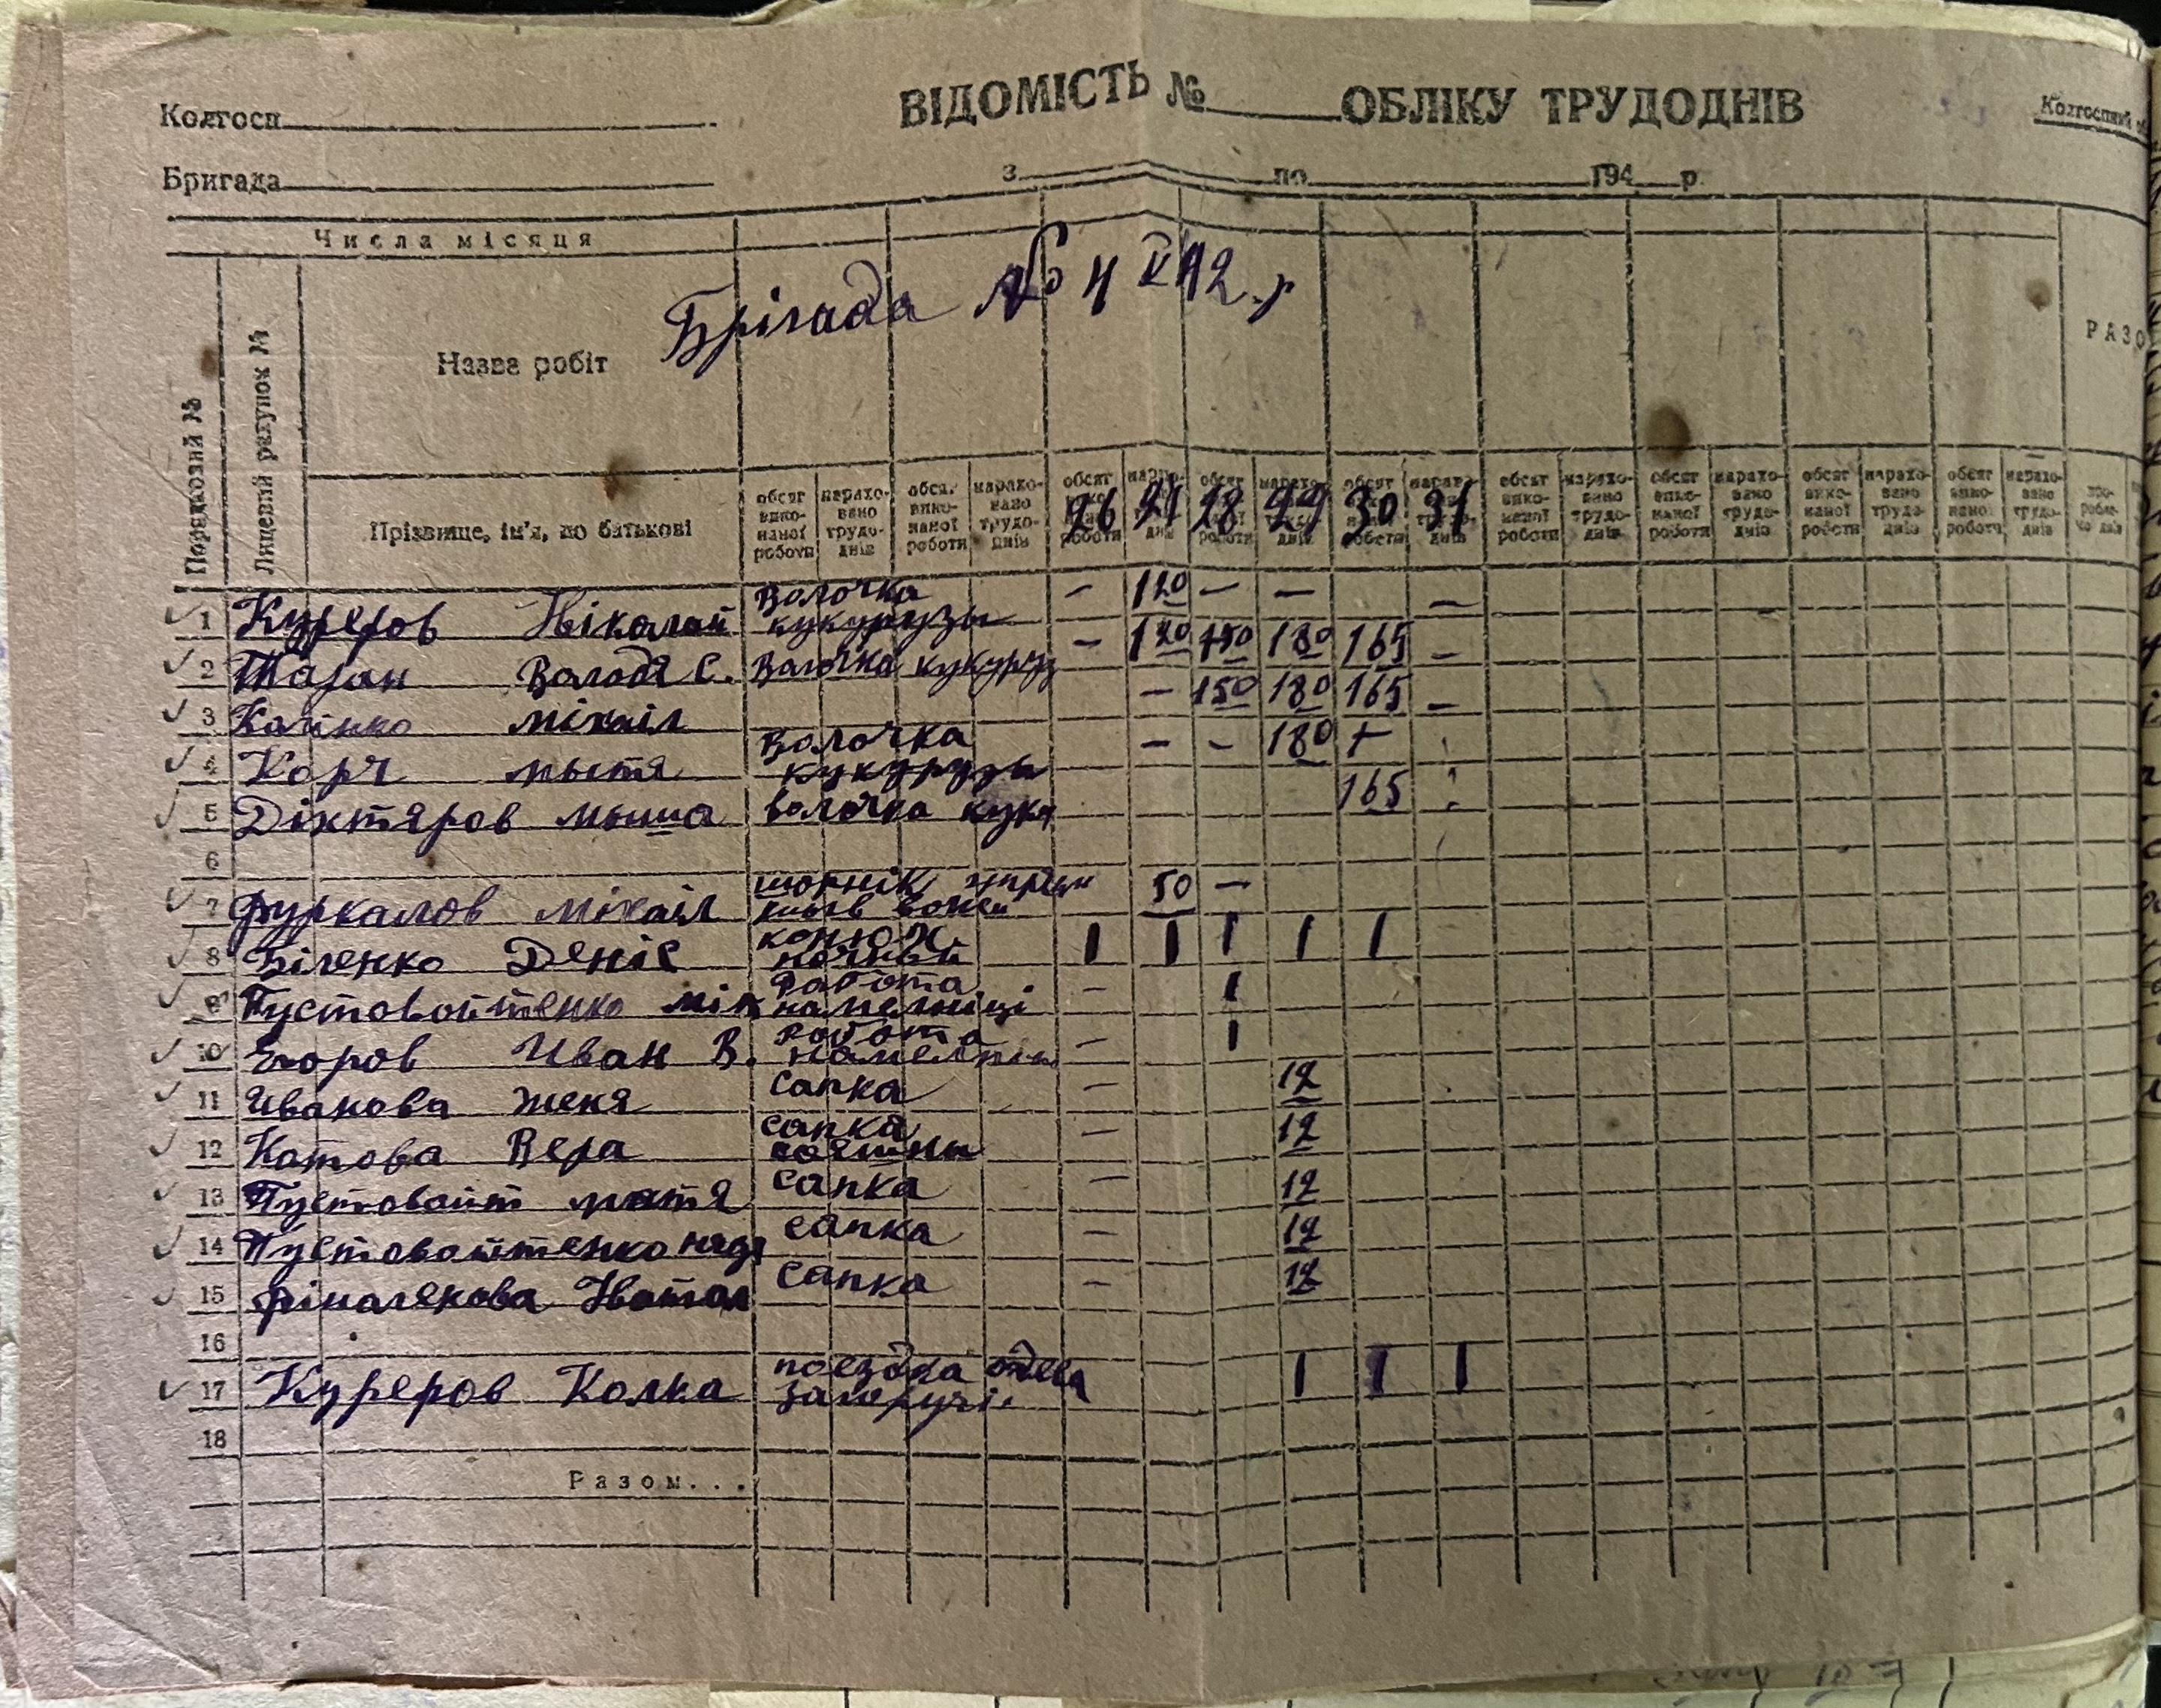 ВІДОМІСТЬ №____ОБЛІКУ ТРУДОДНІВ
Колгосп
Колгоспний
Бригада
з по 194 р.
Числа місяця
Брігада № 4 V 42.р
Порядковий №
Лицевий рахунок №
Назва робіт
РАЗО
Прізвище, ім'я, по батькові
обсяг виконаної роботи нараховано трудоднів обсяг виконаної роботи нараховано трудоднів обсяг виконаної роботи нараховано трудоднів обсяг виконаної роботи нараховано трудоднів обсяг виконаної роботи нараховано трудоднів обсяг виконаної роботи нараховано трудоднів обсяг виконаної роботи нараховано трудоднів обсяг виконаної роботи нараховано трудоднів обсяг виконаної роботи нараховано трудоднів
26 27 28 29 30 31
1 Куреров Ніколай Волочка кукурузы – 120 – – –
2 Таран Володя С. Волочка кукуруз – 120 150 180 165 –
3 Міхаіл – 150 180 165 –
4 Корч Мытя Волочка кукурузы – – 180 +
5 Діхтяров Мыша волочка куку 165
6
7 Фуркалов Міхаіл шорнік 50 –
8 Біленко Деніс конюх ночный 1 1 1 1 1
9 Пустовойтенко Міх работа намельніці – 1
10 Егоров Иван В. работа намельніц – 1
11 Иванова Женя сапка – 12
12 Котова Вера сапка – 12
13 Пустовойт Мотя сапка – 12
14 Пустовойтенко Надя сапка – 12
15 сапка – 12
16
17 Куреров Колка поездка 1 1 1
18
Разом...